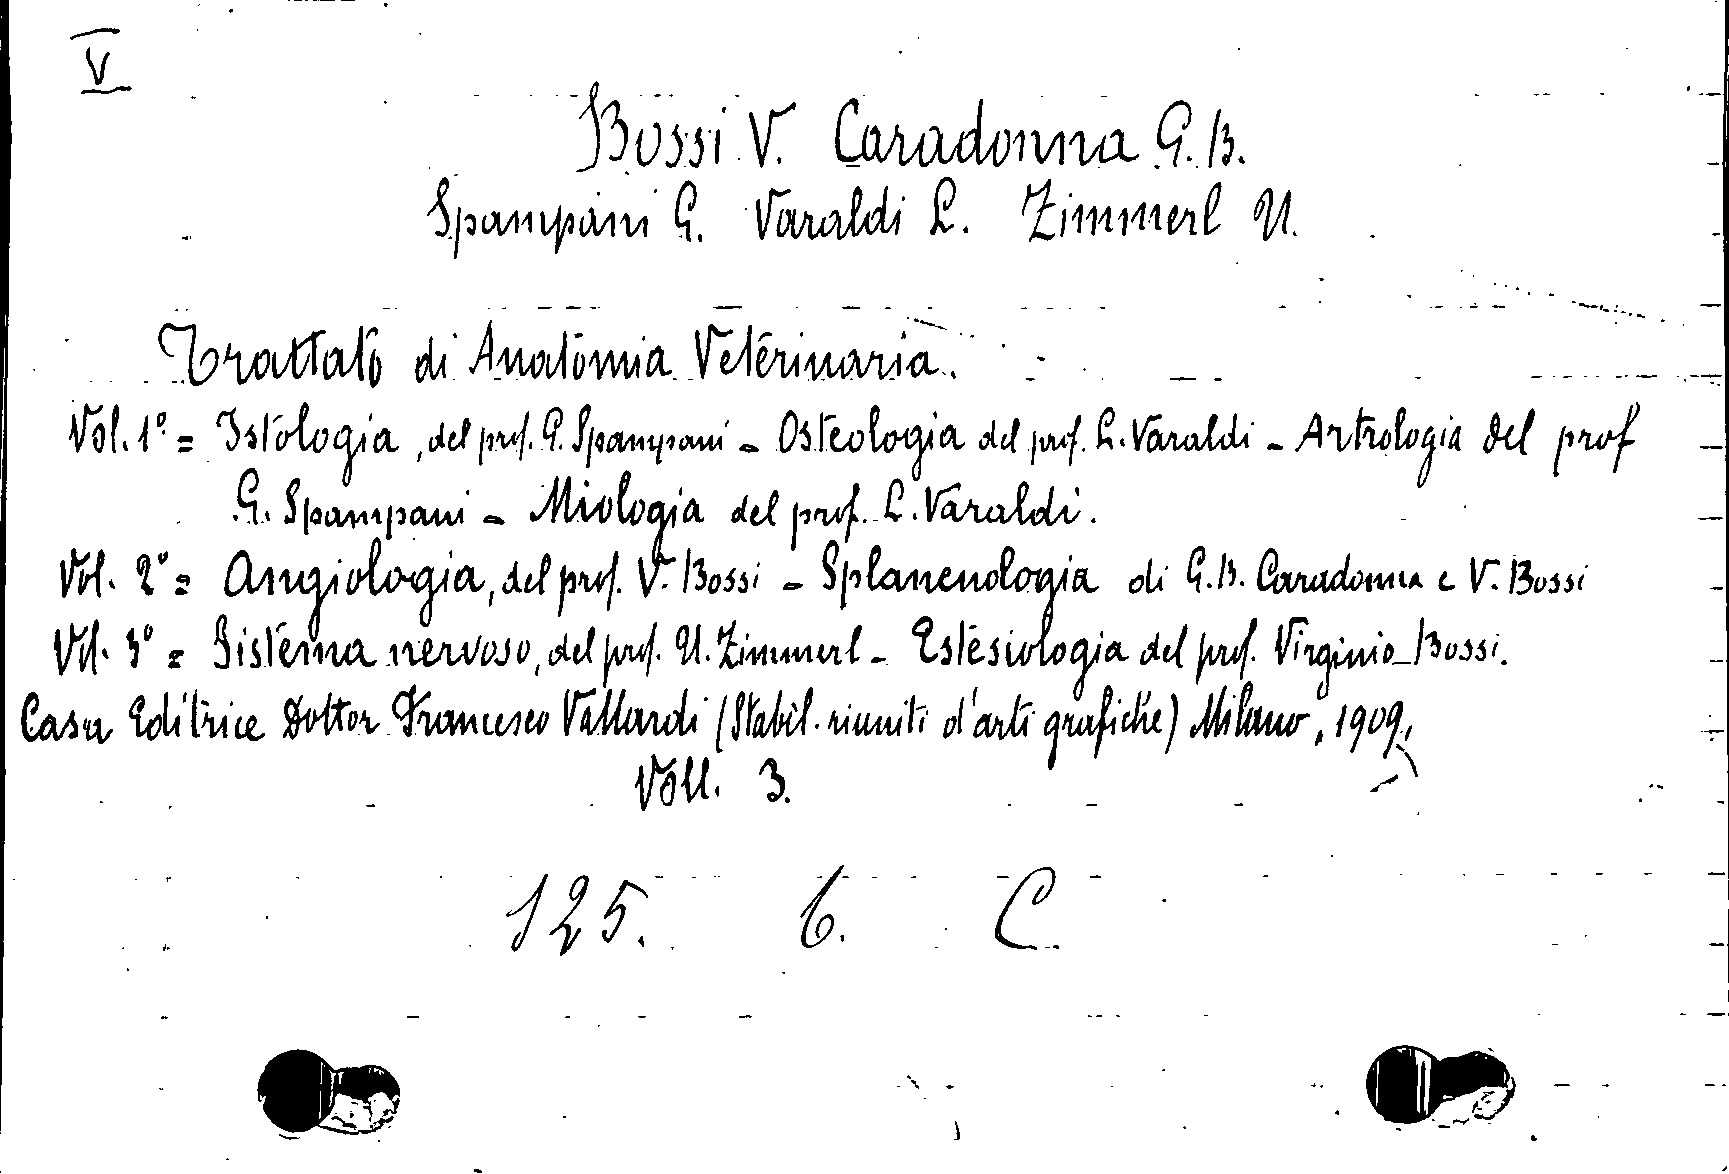 V
Bossi V. Caradonna G.B.
Spampani G. Varaldi L. Zimmerl U.
Trattato di Anatomia Veterinaria.
Vol. 1° = Istologia, del prof. G. Spampani - Osteologia del prof. L. Varaldi - Artrologia del prof
G. Spampani - Miologia del prof. L. Varaldi.
Vol. 2° = Angiologia, del prof. V. Bossi - Splancnologia di G.B. Caradonna e V. Bossi
Vol. 3° = Sistema nervoso, del prof. U. Zimmerl - Estesiologia del prof. Virginio Bossi.
Casa Editrice Dottor Francesco Vallardi (Stabil. riuniti d'arti grafiche) Milano, 1909,
Voll. 3.
125. 6. C